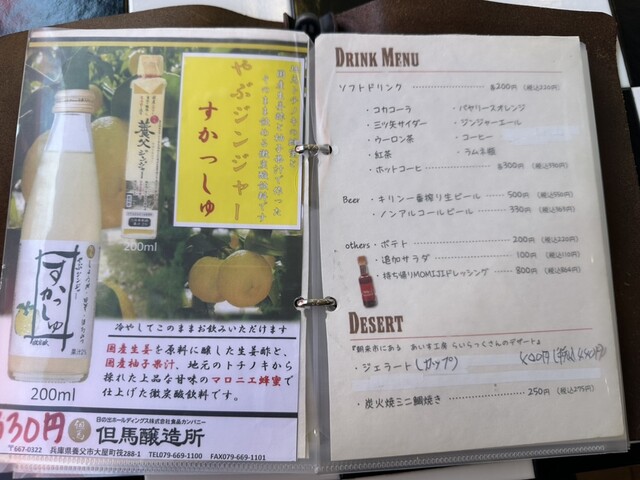 やぶジンジャー
すかっしゅ
養父
200ml
すかっしゅ
200ml
冷やしてこのままお飲みいただけます
国産生姜を原料に醸した生姜酢と、
国産柚子果汁、地元のトチノキから
採れた上品な甘味のマロニエ蜂蜜で
仕上げた微炭酸飲料です。
330円
日の出ホールディングス株式会社食品カンパニー
但馬醸造所
〒667-0322 兵庫県養父市大屋町筏288-1 TEL079-669-1100 FAX079-669-1101
DRINK MENU
ソフトドリンク 各200円 (税込220円)
・コカコーラ ・バヤリースオレンジ
・三ツ矢サイダー ・ジンジャーエール
・ウーロン茶 ・コーヒー
・紅茶 ・ラムネ瓶
・ホットコーヒー 各300円 (税込330円)
Beer ・キリン一番搾り生ビール 500円 (税込550円)
・ノンアルコールビール 330円 (税込363円)
others ・ポテト 200円 (税込220円)
・追加サラダ 100円 (税込110円)
・持ち帰りMOMIJIドレッシング 800円 (税込864円)
DESERT
『朝来市にある あいす工房 らいらっくさんのデザート』
・ジェラート(カップ) 400円(税込440円)
・炭火焼ミニ鯛焼き 250円 (税込275円)